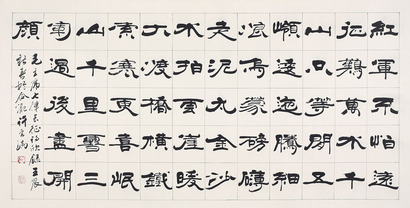 紅軍不怕遠
征難萬水千
山只等閒五
嶺逶迤騰細
浪烏蒙磅礴
走泥丸金沙
水拍雲崖暖
大渡橋橫鐵
索寒更喜岷
山千里雪三
軍過後盡開
顏
毛主席七律長征